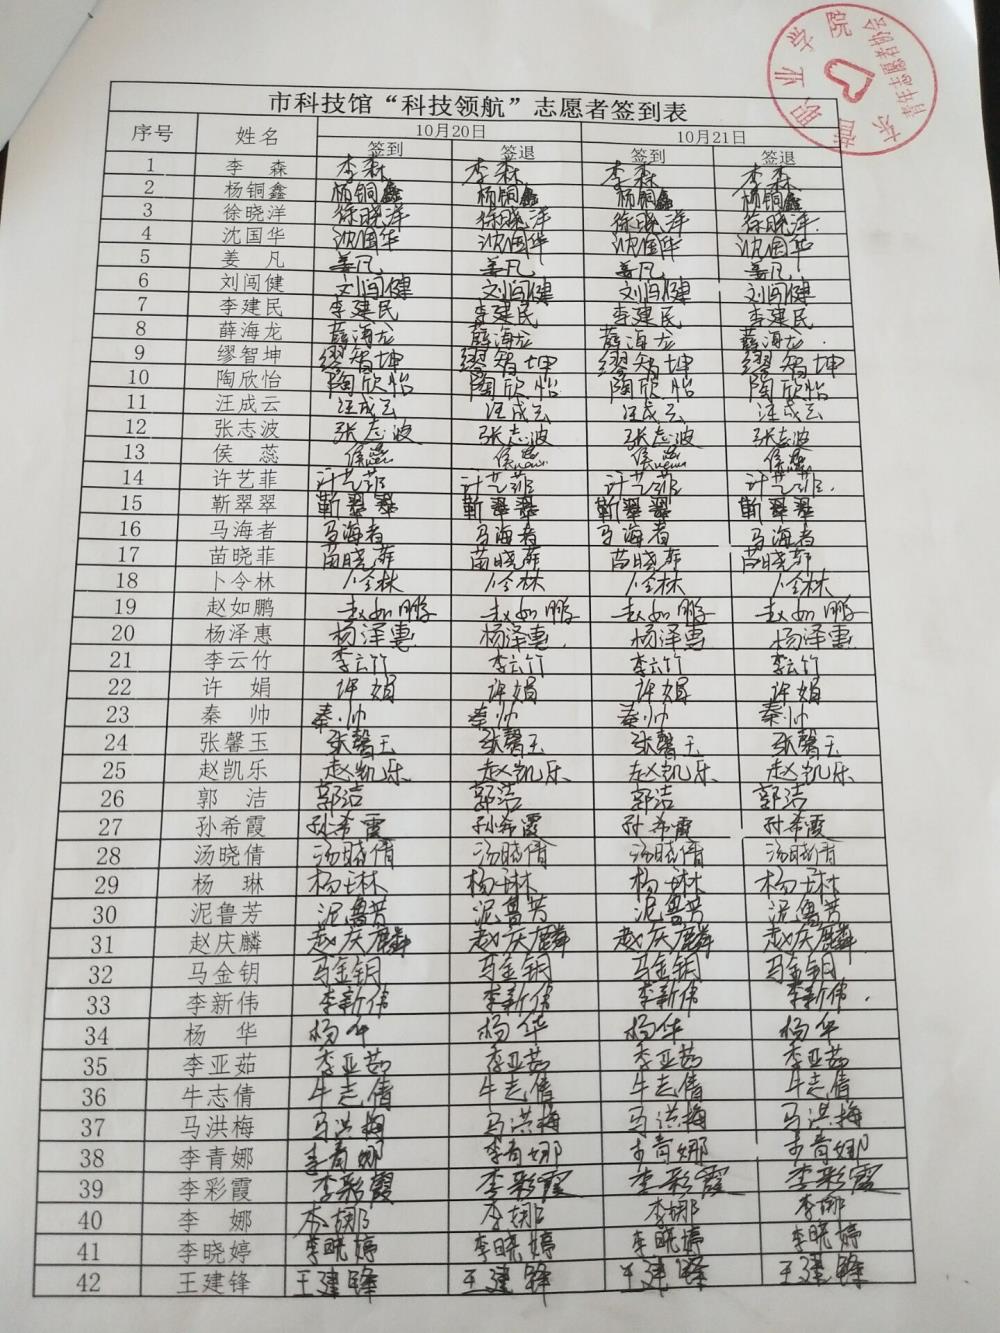 东营职业学院
青年志愿者协会
市科技馆“科技领航”志愿者签到表
序号 姓名 10月20日 10月21日
签到 签退 签到 签退
1 李 森 李森 李森 李森 李森
2 杨铜鑫 杨铜鑫 杨铜鑫 杨铜鑫 杨铜鑫
3 徐晓洋 徐晓洋 徐晓洋 徐晓洋 徐晓洋
4 沈国华 沈国华 沈国华 沈国华 沈国华
5 姜 凡 姜凡 姜凡 姜凡 姜凡
6 刘闯健 刘闯健 刘闯健 刘闯健 刘闯健
7 李建民 李建民 李建民 李建民 李建民
8 薛海龙 薛海龙 薛海龙 薛海龙 薛海龙
9 缪智坤 缪智坤 缪智坤 缪智坤 缪智坤
10 陶欣怡 陶欣怡 陶欣怡 陶欣怡 陶欣怡
11 汪成云 汪成云 汪成云 汪成云 汪成云
12 张志波 张志波 张志波 张志波 张志波
13 侯 蕊 侯蕊 侯蕊 侯蕊 侯蕊
14 许艺菲 许艺菲 许艺菲 许艺菲 许艺菲
15 靳翠翠 靳翠翠 靳翠翠 靳翠翠 靳翠翠
16 马海者 马海者 马海者 马海者 马海者
17 苗晓菲 苗晓菲 苗晓菲 苗晓菲 苗晓菲
18 卜令林 卜令林 卜令林 卜令林 卜令林
19 赵如鹏 赵如鹏 赵如鹏 赵如鹏 赵如鹏
20 杨泽惠 杨泽惠 杨泽惠 杨泽惠 杨泽惠
21 李云竹 李云竹 李云竹 李云竹 李云竹
22 许 娟 许娟 许娟 许娟 许娟
23 秦 帅 秦帅 秦帅 秦帅 秦帅
24 张馨玉 张馨玉 张馨玉 张馨玉 张馨玉
25 赵凯乐 赵凯乐 赵凯乐 赵凯乐 赵凯乐
26 郭 洁 郭洁 郭洁 郭洁 郭洁
27 孙希霞 孙希霞 孙希霞 孙希霞 孙希霞
28 汤晓倩 汤晓倩 汤晓倩 汤晓倩 汤晓倩
29 杨 琳 杨琳 杨琳 杨琳 杨琳
30 泥鲁芳 泥鲁芳 泥鲁芳 泥鲁芳 泥鲁芳
31 赵庆麟 赵庆麟 赵庆麟 赵庆麟 赵庆麟
32 马金钥 马金钥 马金钥 马金钥 马金钥
33 李新伟 李新伟 李新伟 李新伟 李新伟
34 杨 华 杨华 杨华 杨华 杨华
35 李亚茹 李亚茹 李亚茹 李亚茹 李亚茹
36 牛志倩 牛志倩 牛志倩 牛志倩 牛志倩
37 马洪梅 马洪梅 马洪梅 马洪梅 马洪梅
38 李青娜 李青娜 李青娜 李青娜 李青娜
39 李彩霞 李彩霞 李彩霞 李彩霞 李彩霞
40 李 娜 李娜 李娜 李娜 李娜
41 李晓婷 李晓婷 李晓婷 李晓婷 李晓婷
42 王建锋 王建锋 王建锋 王建锋 王建锋